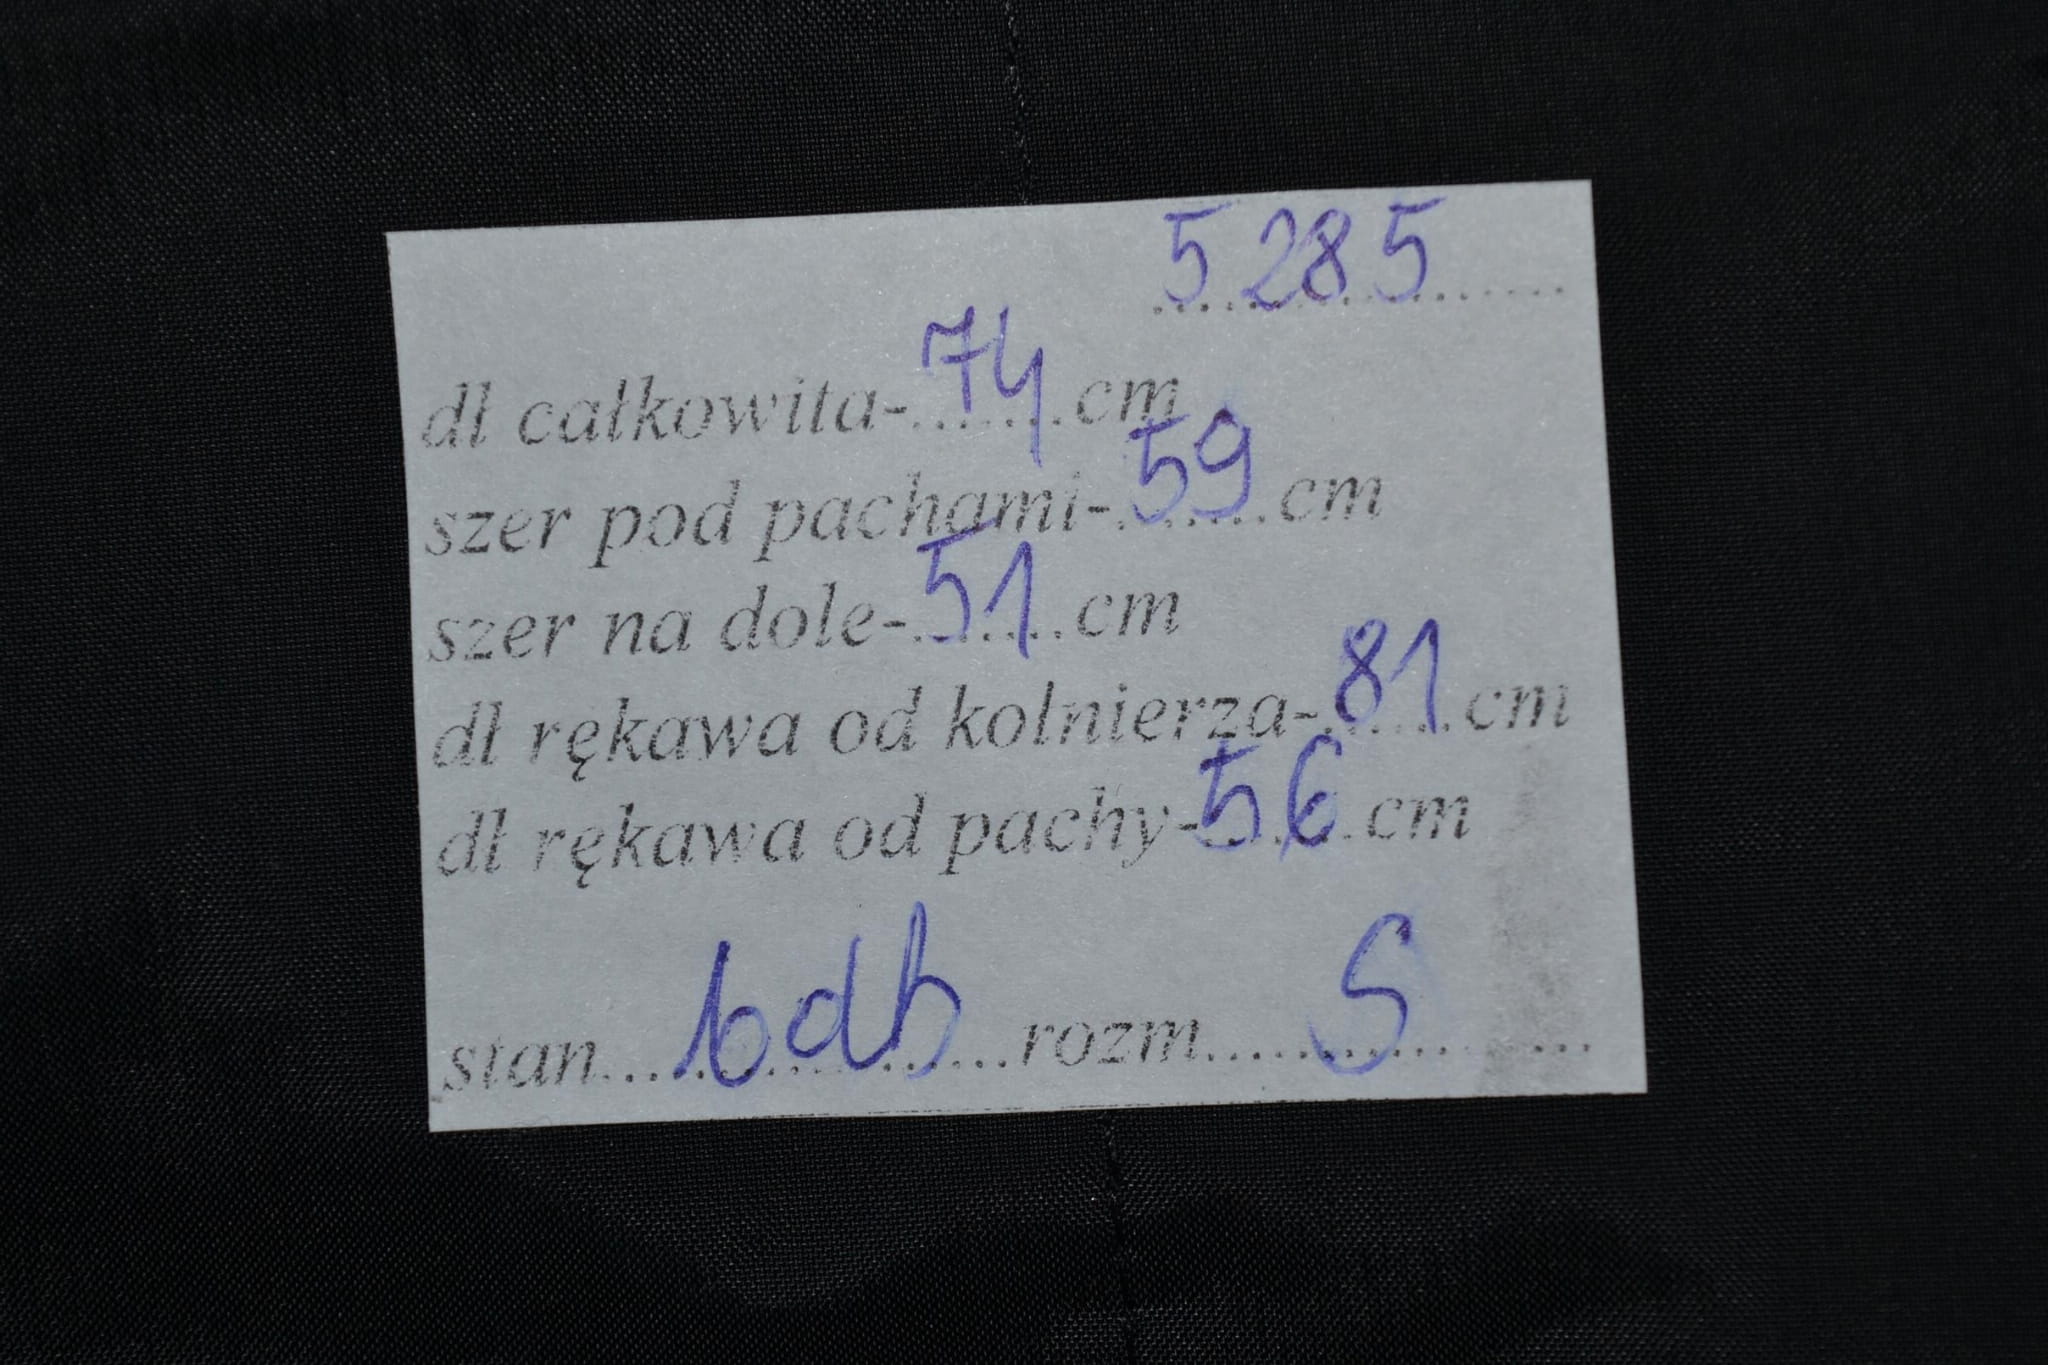 5285
dł całkowita-74cm
szer pod pachami-59cm
szer na dole-51cm
dł rękawa od kolnierza-81cm
dł rękawa od pachy-56cm
stan...bdb...rozm...S...